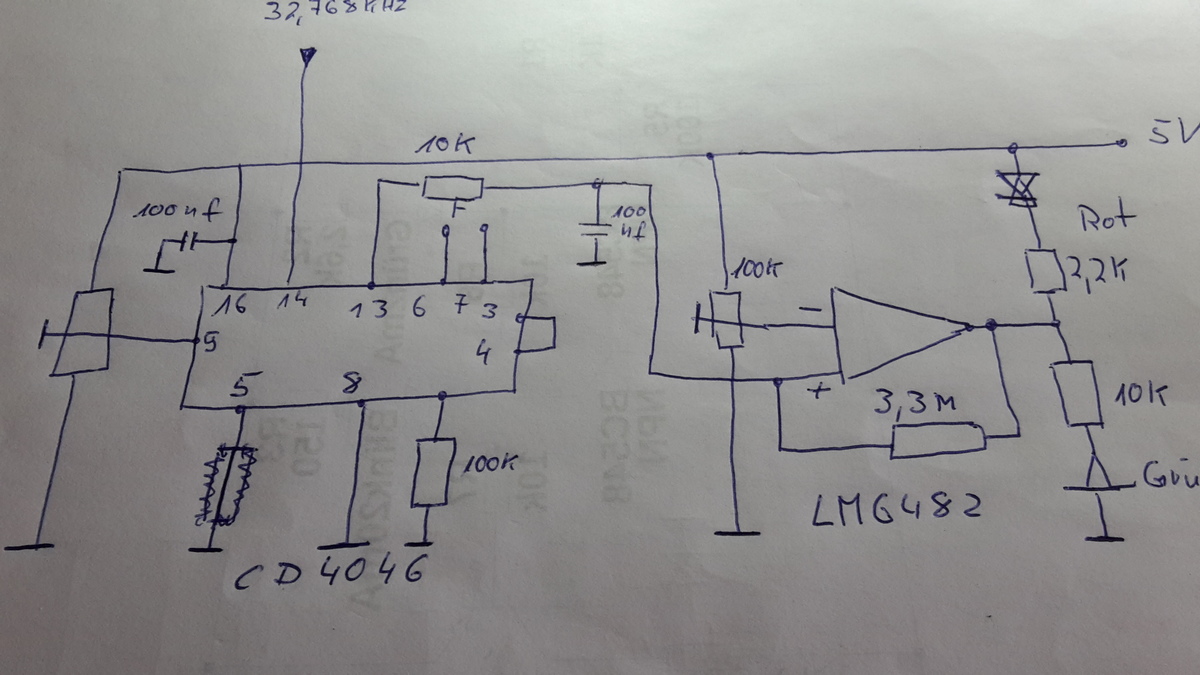 32,768KHz
10K
5V
100nf
F
100
nf
Rot
100K
2,2K
16 14 13 6 7 3
9
4
5 8
−
+
3,3M
10K
100K
Grü
LM6482
CD4046